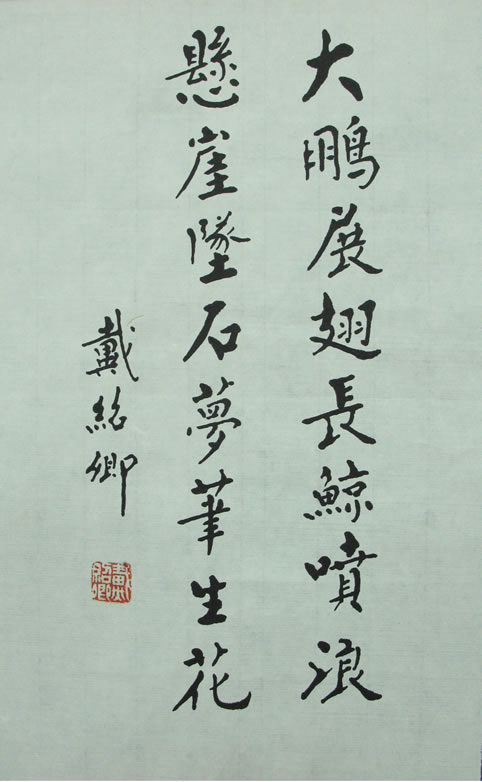 大鵬展翅長鯨噴浪
懸崖墜石夢筆生花
戴紹卿
戴紹卿